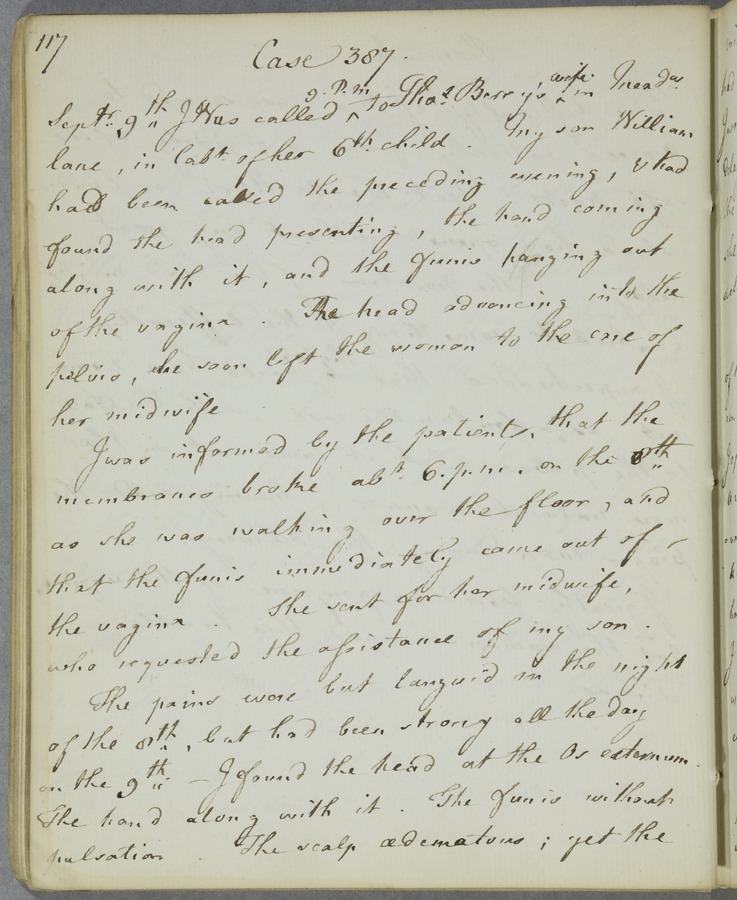 117
Case 387.
Septr. 9th I Was called 9. P.m to Thos. Berry's wife in Meadw.
lane, in labr. of her 6th. child. My son William
had been called the preceding evening, & had
found the head presenting, the hand coming
along with it, and the funis hanging out
of the vagina. The head advancing into the
pelvis, he soon left the woman to the care of
her midwife
I was informed by the patient, that the
membranes broke abt. 6. p.m. on the 8th
as she was walking over the floor, and
that the funis immediately came out of
the vagina. She sent for her midwife,
who requested the assistance of my son.
The pains were but languid in the night
of the 8th, but had been strong all the day
on the 9th — I found the head at the Os externum.
The hand along with it. The funis without
pulsation. The scalp œdematous; yet the